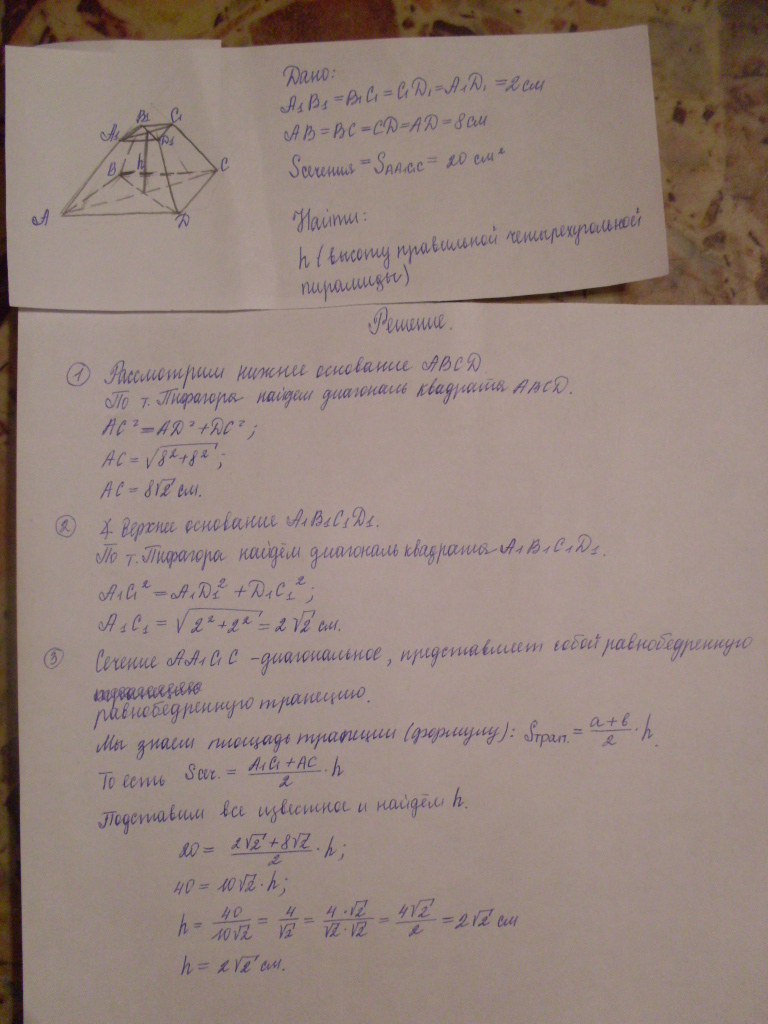 B1 C1
A1 D1
B h C
A D
Дано:
A1B1=B1C1=C1D1=A1D1=2см
AB=BC=CD=AD=8см
Sсечения=SAA1C1C=20 см²
Найти:
h (высоту правильной четырехугольной
пирамиды)
Решение.
① Рассмотрим нижнее основание ABCD
По т. Пифагора найдем диагональ квадрата ABCD.
AC²=AD²+DC²;
AC=√8²+8²;
AC=8√2 см.
② ∡ верхнее основание A1B1C1D1.
По т. Пифагора найдём диагональ квадрата A1B1C1D1.
A1C1²=A1D1²+D1C1²;
A1C1=√2²+2²=2√2 см.
③ Сечение AA1C1C -диагональное, представляет собой равнобедренную
равнобедренную трапецию.
Мы знаем площадь трапеции (формулу): Sтрап.=(a+b)/2·h.
То есть Sсеч.=(A1C1+AC)/2·h
Подставим все известное и найдём h.
20=(2√2+8√2)/2·h;
40=10√2·h;
h=40/10√2=4/√2=4·√2/√2·√2=4√2/2=2√2 см
h=2√2 см.